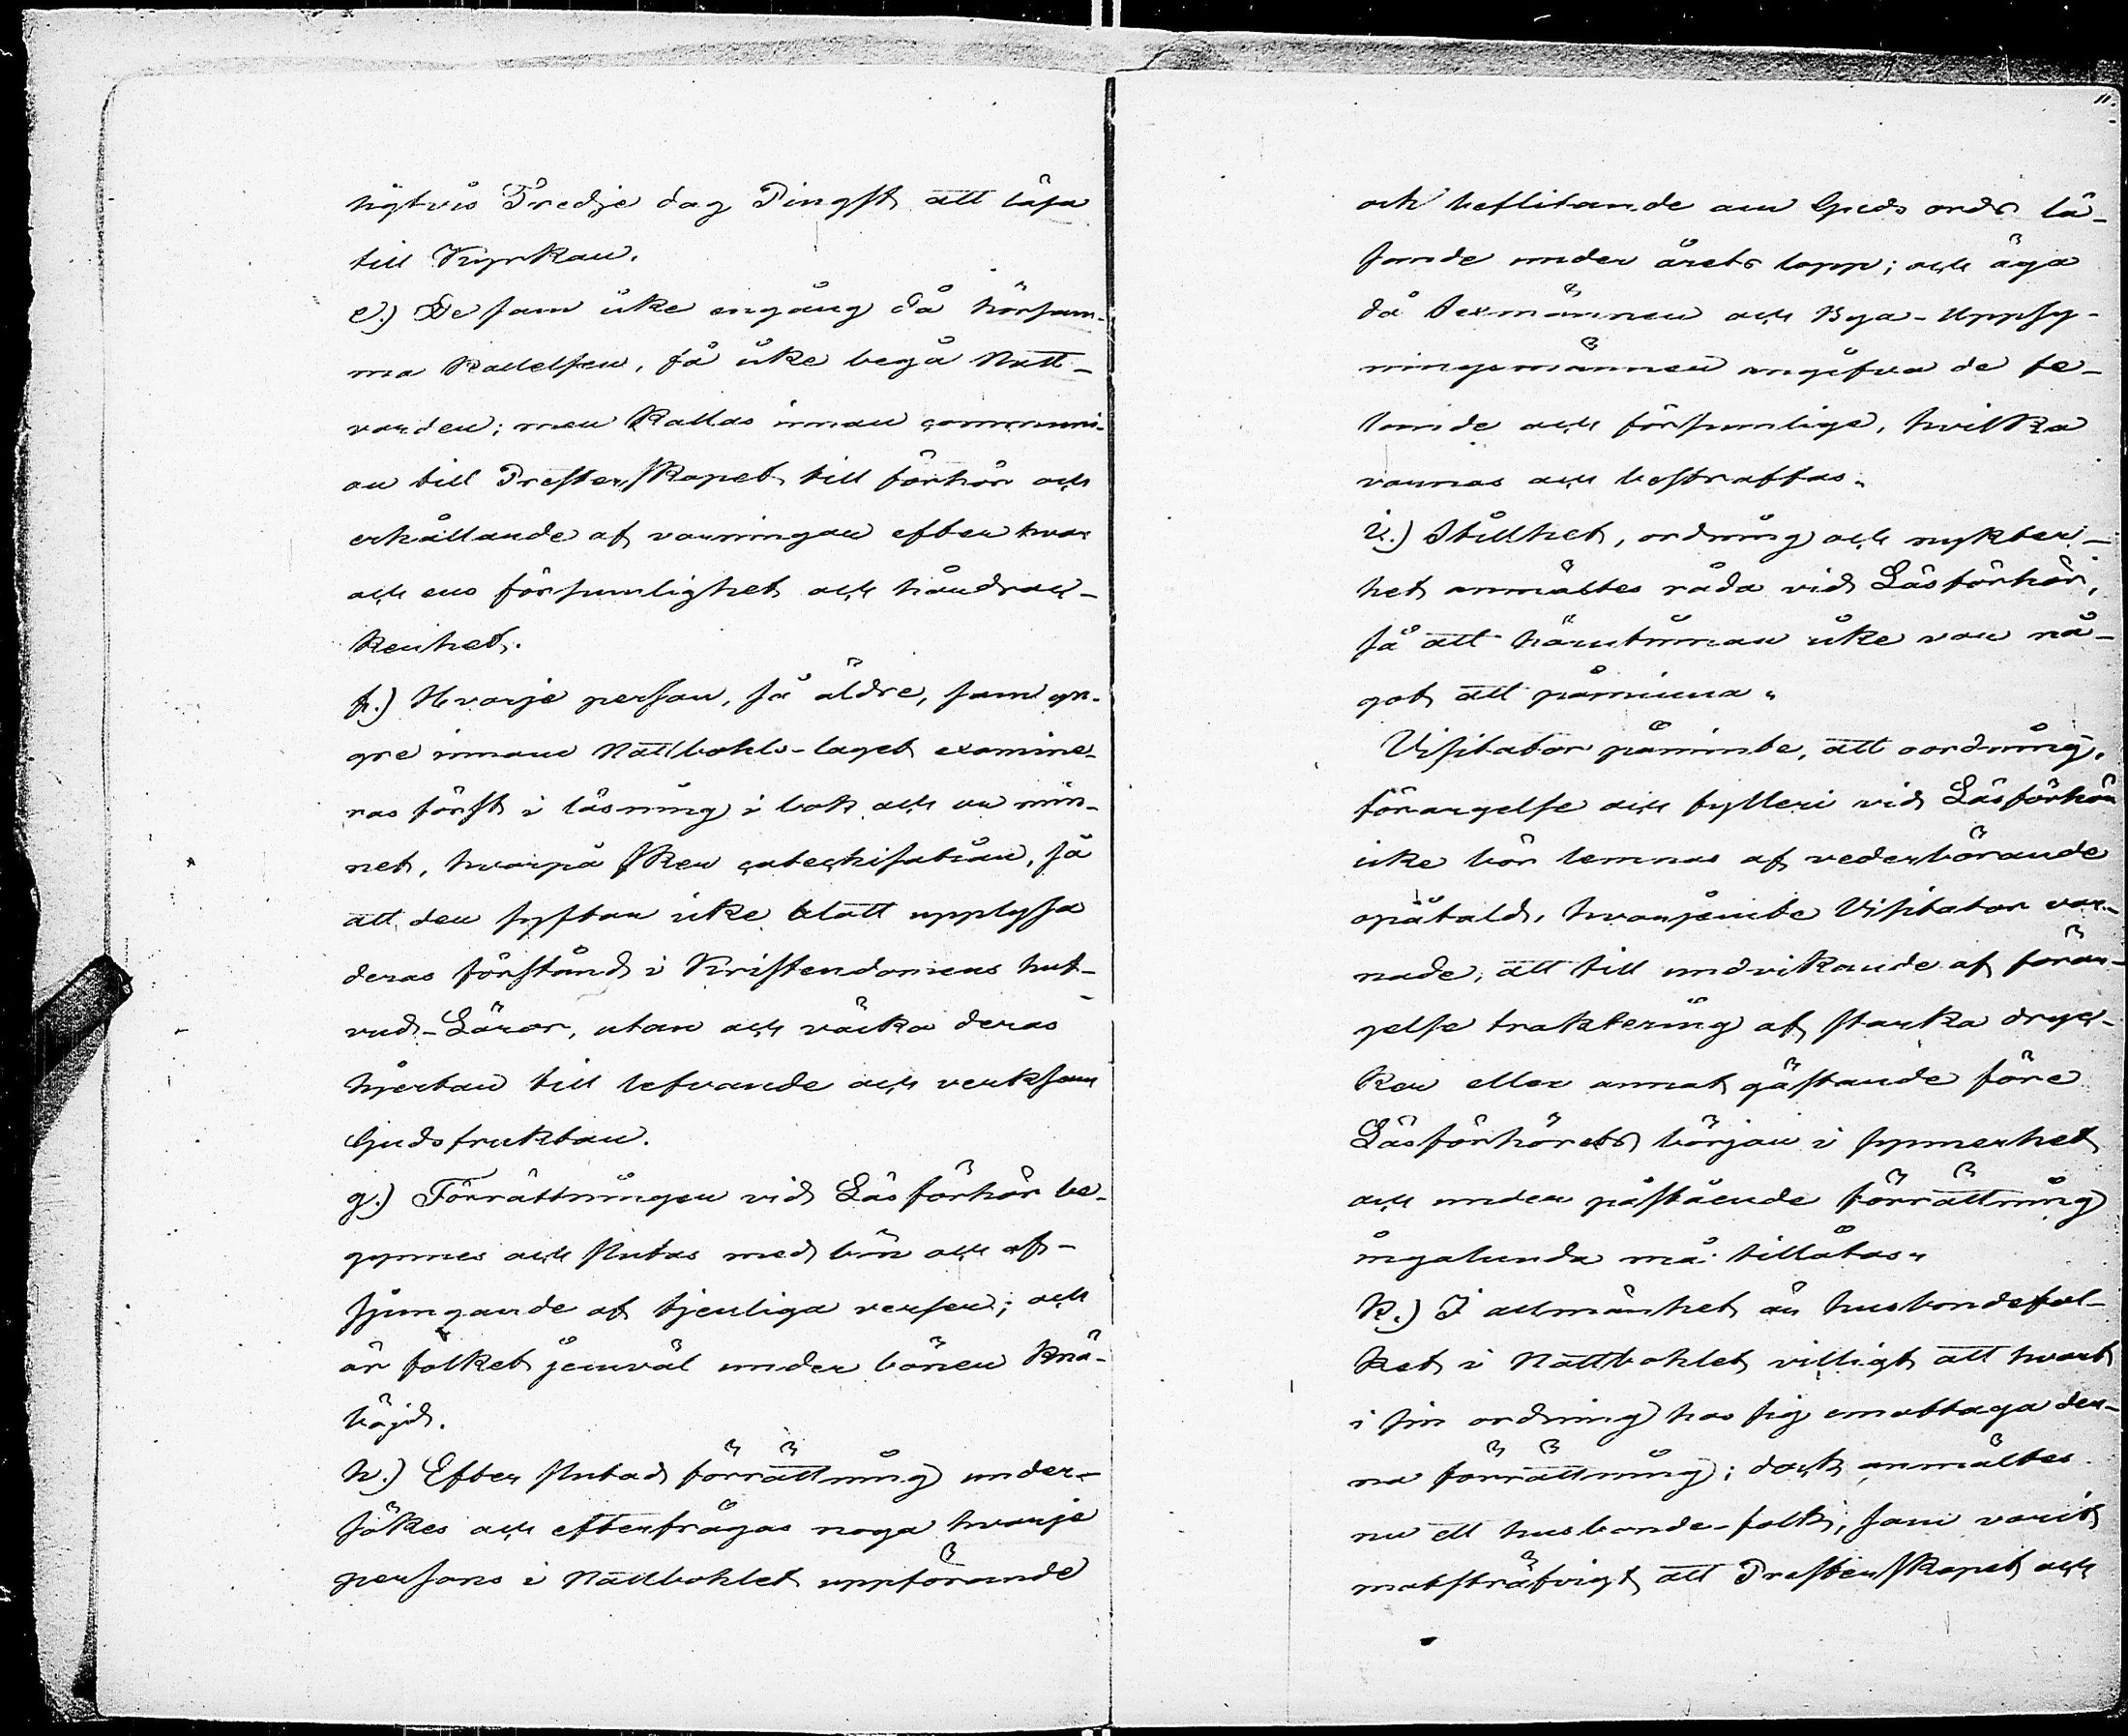 ligtvis Tredje dag Pingst att läsa
till Kyrkan.
e.) De som icke engång då hörsam-
ma kallelsen, få icke begå Natt-
varden; men kallas innan communi-
on till Presterskapet till förhör och
erhållande af varningar efter hvar
och ens försumlighet och hårdnac-
kenhet.
f.) Hvarje person, så äldre, som yn-
gre innom Nattbohls-laget examine-
ras först i läsning i bok och ur min-
net, hvarpå sker catechisation, så
att den syftar icke blott upplysa
deras förstånd i Kristendomens huf-
vud-Läror, utan och väcka deras
hjertan till lefvande och verksam
Gudsfruktan.
g.) Förrättningen vid Läsförhör be-
gynnes och slutas med bön och af-
sjungande af tjenliga verser; och
är folket jemväl under bönen knä-
böjd.
h.) Efter slutad förrättning under-
sökes och efterfrågas noga hvarje
persons i Nattbohlet uppförande
11.
och beflitande om Guds ords lä-
sande under årets lopp; och äga
då Sexmännen och Bya-Uppsy-
ningsmännen angifva de fe-
lande och försumlige, hvilka
varnas och bestraffas.
i.) Stillhet, ordning och nykter-
het anmältes råda vid Läsförhör,
så att härutinnan icke var nå-
got att påminna.
Visitator påminte, att oordning,
förargelse och fylleri vid Läsförhör
icke bör lemnas af vederbörande
opåtald, hvarjemte Visitator var-
nade, att till undvikande af förar-
gelse traktering af starka dryc-
ker eller annat gästande före
Läsförhörets början i synnerhet
och under påstående förrättning
ingalunda må tillåtas.
k.) I allmänhet är husbondefol-
ket i Nattbohlet villigt att hvart
i sin ordning hos sig emottaga den-
na förrättning; dock anmältes
nu ett husbonde-folk, som varit
motsträfvigt att Presterskapet och